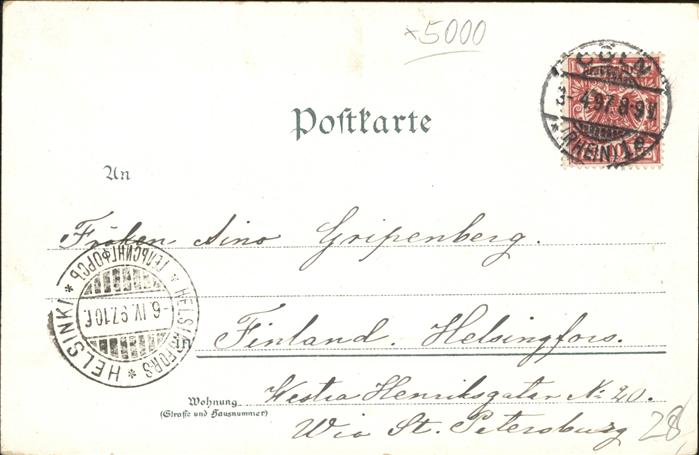 ×5000
CÖLN
3-4.97.8-9V.
*(RHEIN)1e
Postkarte
An
Fröken Aino Gripenberg.
HELSINKI * ГЕЛЬСИНГФОРСЪ * HELSINGFORS *
6.IV.97.10f.
Finland. Helsingfors.
Wohnung
(Straße und Hausnummer)
Westra Henriksgatan No 20.
Via St. Petersburg
28